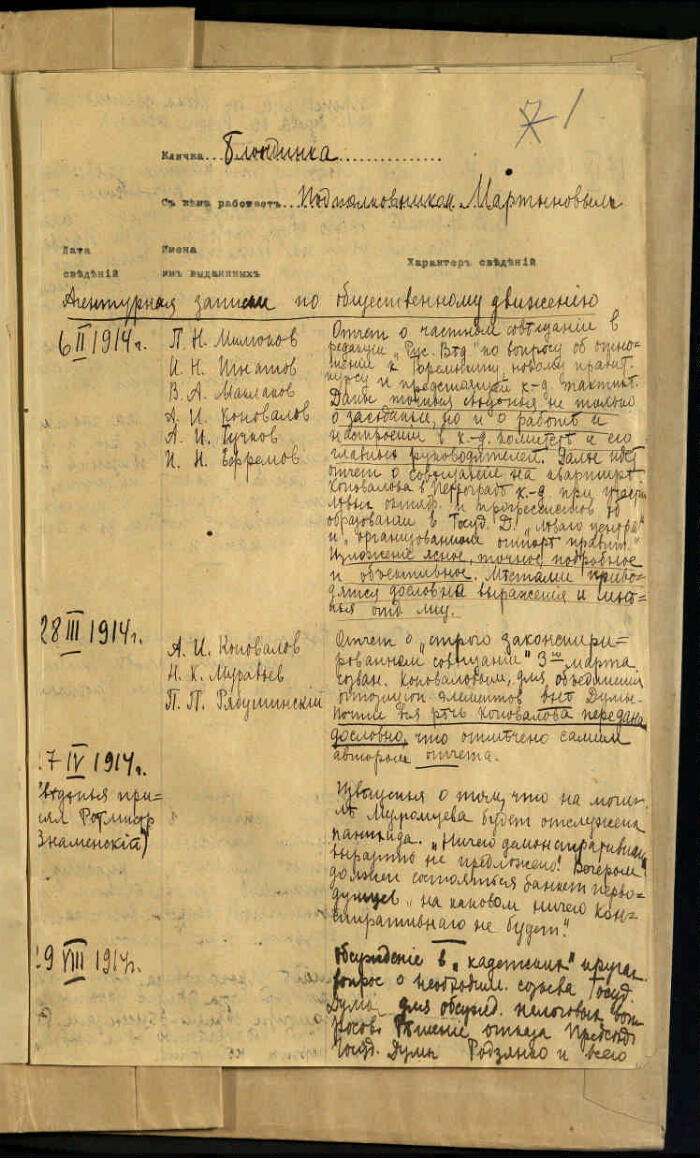 71
Кличка...Блондинка
Съ кѣмъ работаетъ...Подполковникомъ Мартыновымъ
Дата
свѣдѣній
Имена
имъ выданныхъ
Характеръ свѣдѣній
Агентурная записки по общественному движенію
6 II 1914г.
П. Н. Милюков
И. Н. Игнатов
В. А. Маклаков
А. И. Коновалов
А. И. Гучков
И. Н. Ефремов
Отчет о частном совѣщании в
редакции „Рус. Вѣд" по вопросу об отно-
шении к Горемыкину, новому правит.
курсу и предстоящей к-д. тактикѣ.
Даны точныя свѣдѣнья не только
о засѣдании, но и о работѣ и
настроении в к.-д. комитетѣ и его
главных руководителей. Далѣе идет
отчет о совѣщании на квартирѣ
Коновалова в Петроградѣ к.-д. при участи
лѣвых октябр. и прогрессистов об
образовании в Госуд. Д. „лѣваго центра"
и „организованном отпорѣ правит."
Изложение ясное, точное подробное
и объективное. Мѣстами приво-
дятся дословно выражения и мнѣ-
нья отд. лиц.
28 III 1914г.
А. И. Коновалов
Н. К. Муравьев
П. П. Рябушинскій
Отчет о „строго законспири-
рованном совѣщании" 3го марта
созван. Коноваловым, для объединения
оппозицион. элементов внѣ Думы.
Почти вся рѣчь Коновалова передана
дословно, что отмѣчено самим
автором отчета.
17 IV 1914г.
(свѣдѣнья при-
нял Ротмистр
Знаменскій)
Извѣщенья о том, что на моги-
лѣ Муромцева будет отслужена
панихида. „Ничего демонстративнаго
не предложено! Вечером
должен состояться банкет перво-
думцев „на каковом ничего кон-
спиративнаго не будет".
19 VIII 1914г.
Обсуждение в „кадетских" кругах
вопрос о необходим. созыва Госуд.
Думы для обсужд. налоговых воп-
росов. Рѣшение отказа Предсѣд.
Госуд. Думы Родзянко и всего